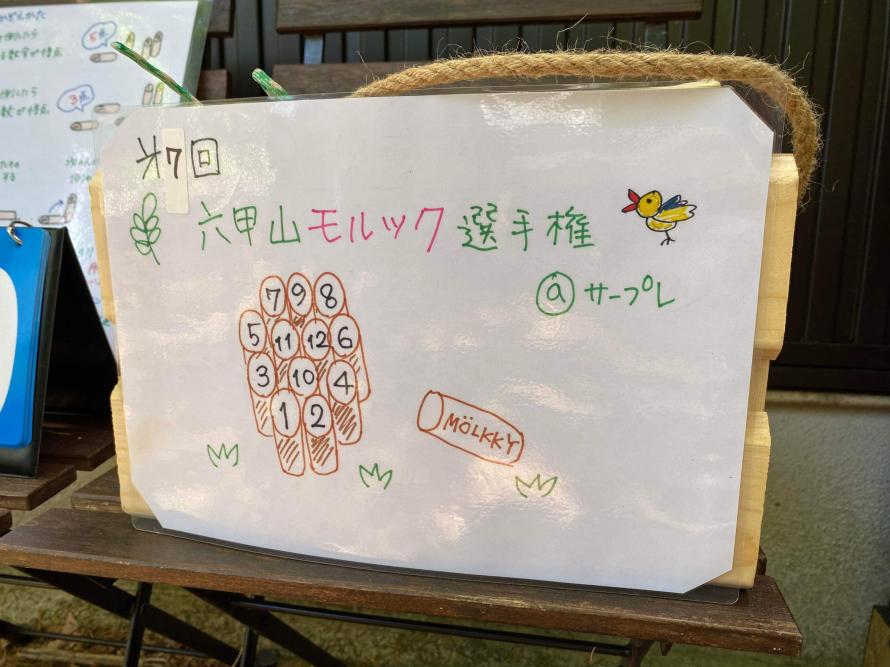 第7回
六甲山モルック選手権
@サープレ
7 9 8
5 11 12 6
3 10 4
1 2
MÖLKKY
5点
3点